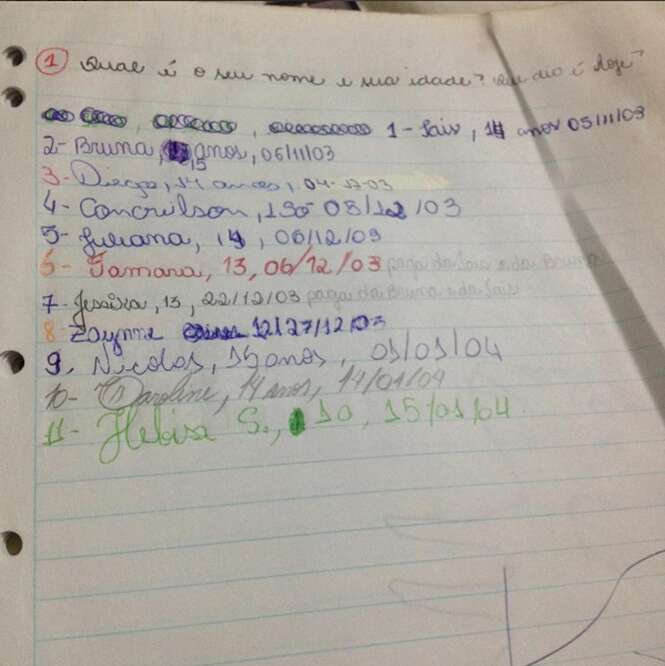 1 Qual é o seu nome e sua idade? Que dia é hoje?
1 - Laís, 14 anos 05/11/03
2- Bruna, 15 anos, 06/11/03
3- Diego, 14 anos, 04-12-03
4- 130 05/12/03
5- Juliana, 14, 06/12/03
6- Tamara, 13, 06/12/03 paga da Lais e da Bruna
7- Jessica, 13, 22/12/03 paga da Bruna e da Lais
8- 12/27/12/03
9. Nicolas, 15 anos, 01/01/04
10- Caroline, 14 anos, 14/01/04
11- S., 10, 15/01/04